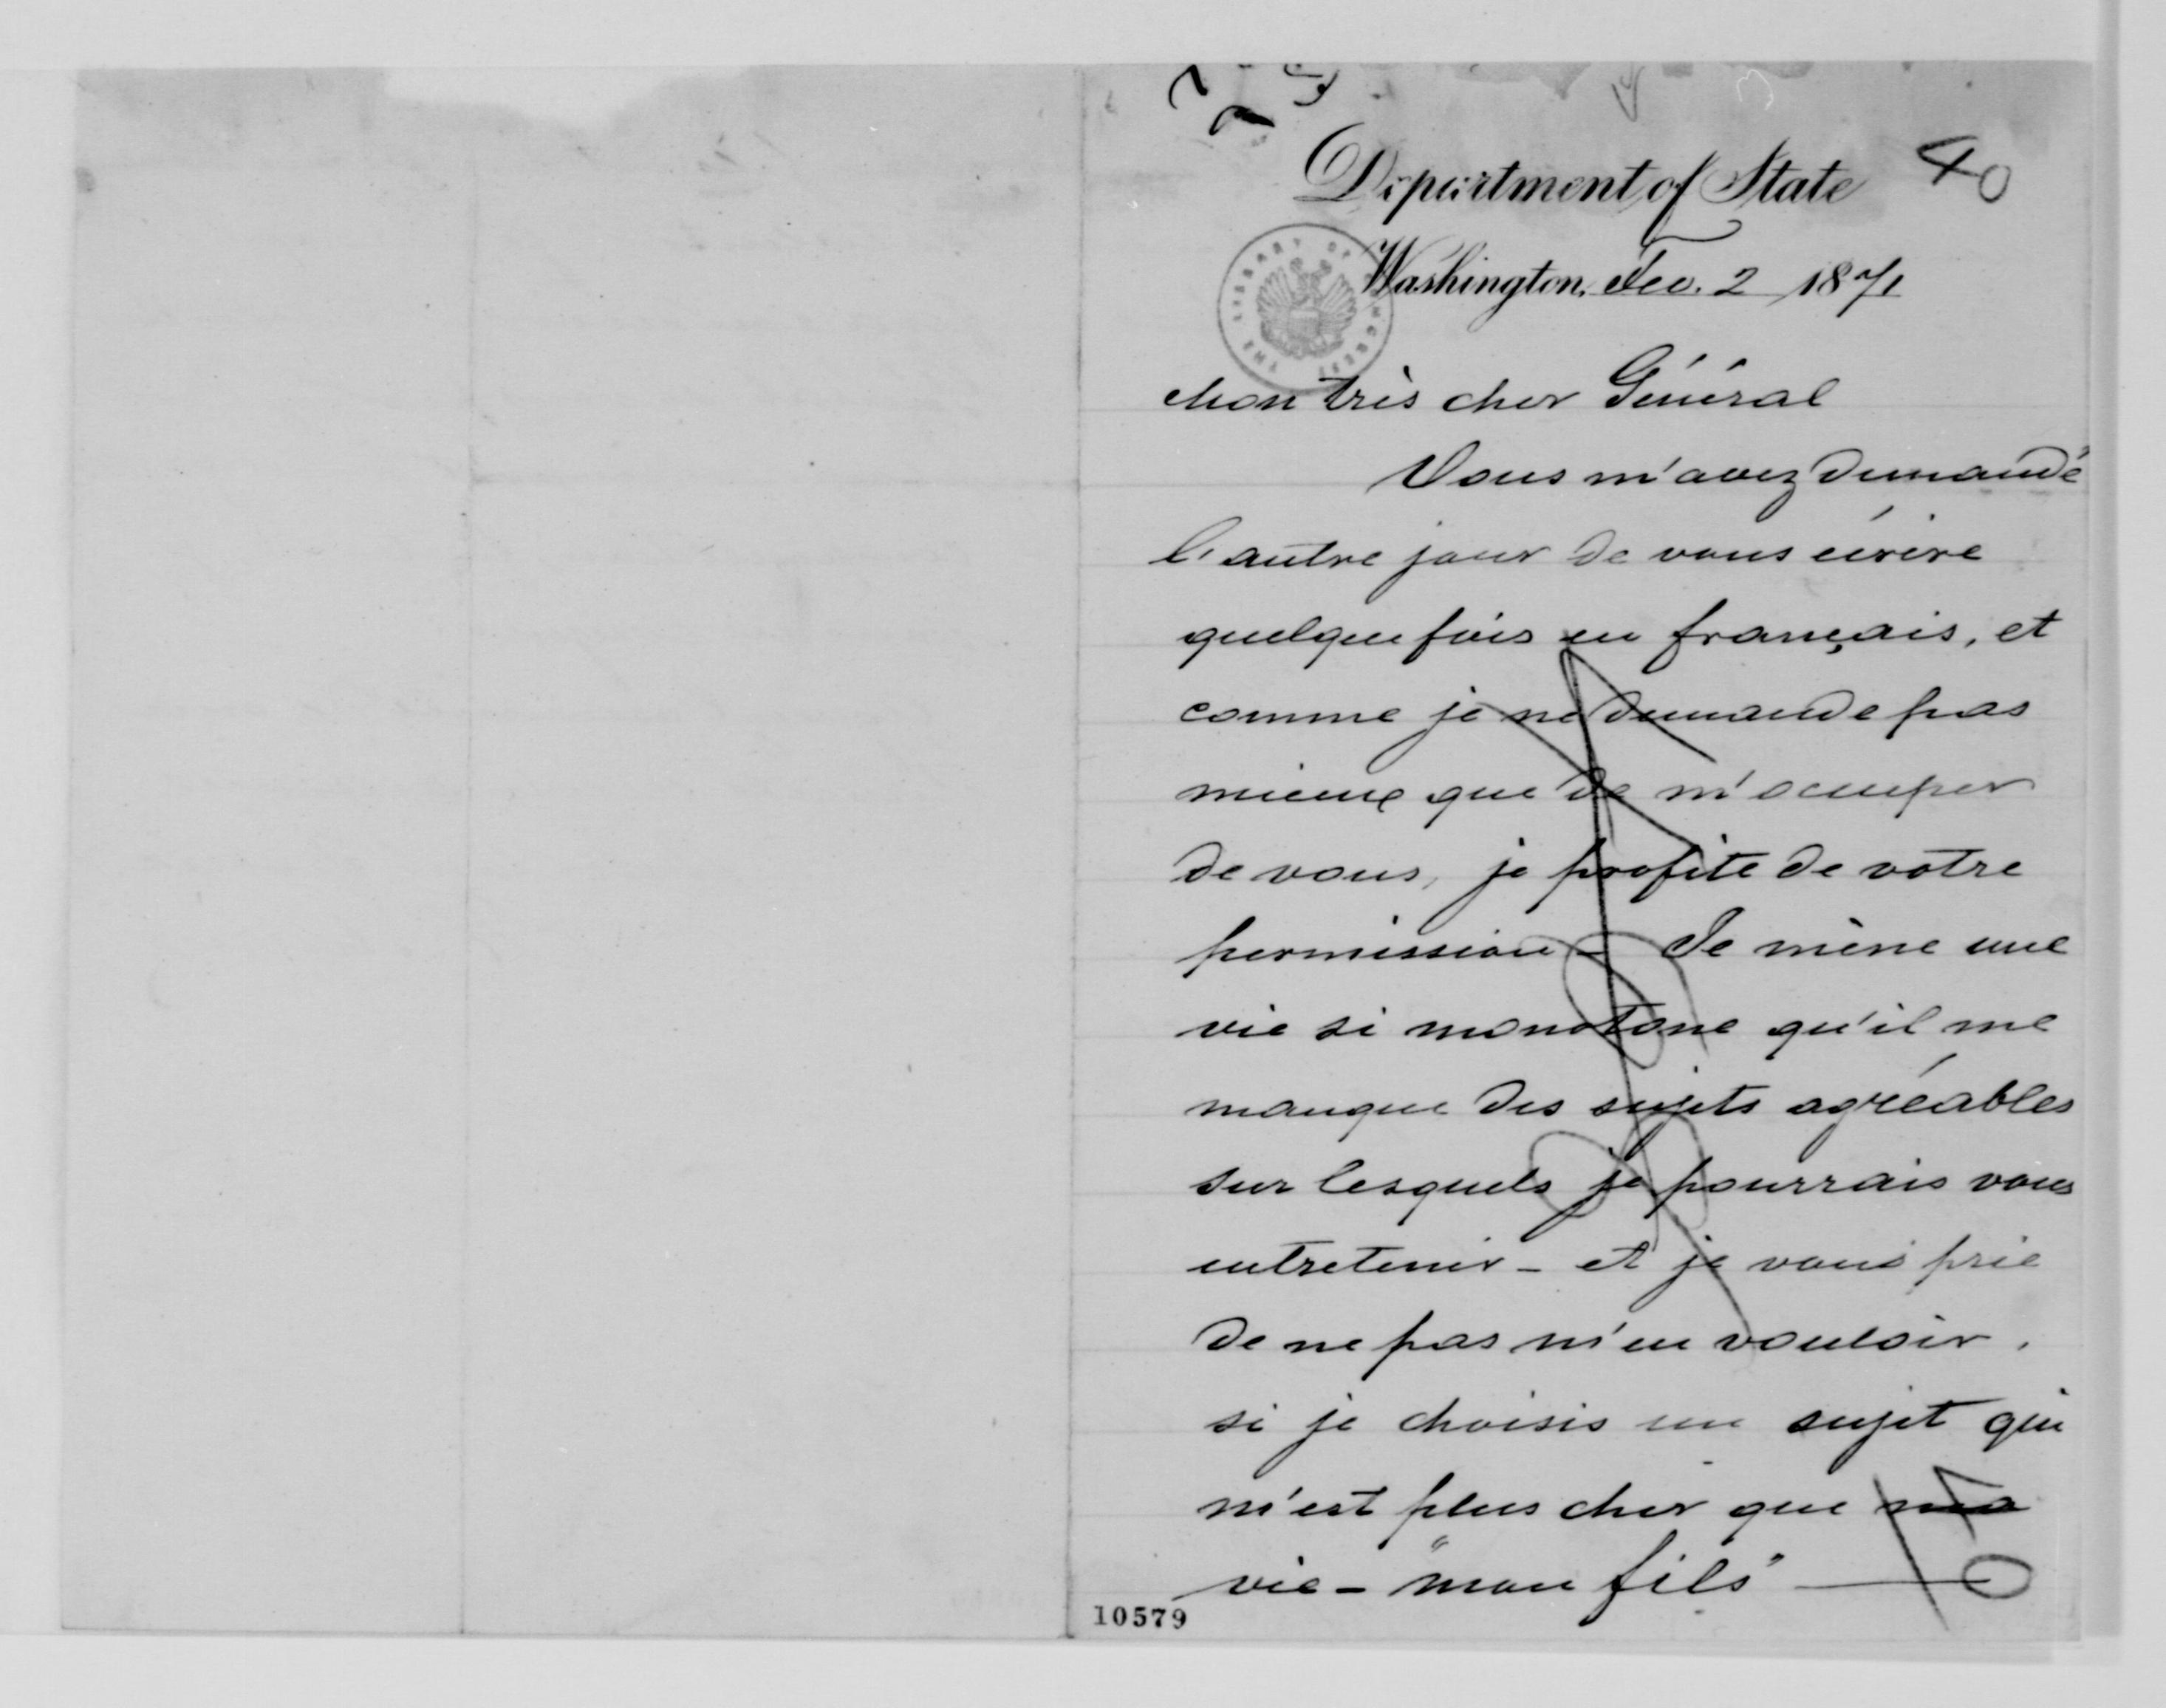 40
Department of State
Washington, Dec. 2 1871
THE LIBRARY OF CONGRESS
Mon très cher Général
Vous m'avez demandé
l'autre jour de vous écrire
quelque fois en français, et
comme je ne demande pas
mieux que de m'occuper
de vous, je profite de votre
permission - Je mène une
vie si monotone qu'il me
manque des sujets agréables
sur lesquels je pourrais vous
entretenir - et je vous prie
de ne pas m'en vouloir.
si je choisis un sujet qui
m'est plus cher que ma
vie - "mon fils" —
10579